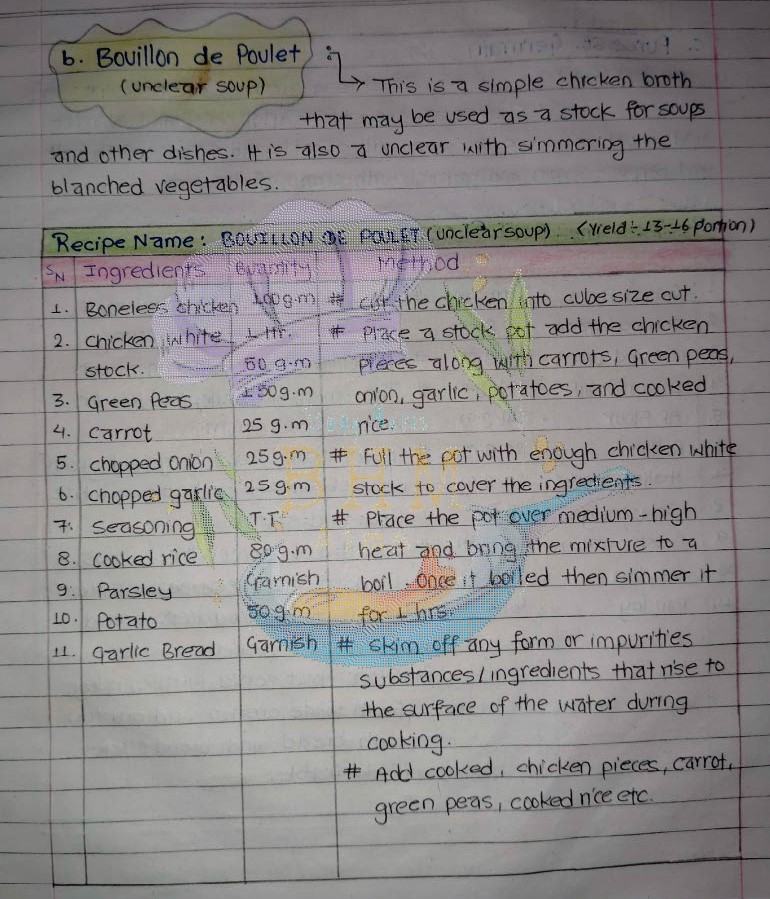 b. Bouillon de Poulet :
(unclear soup) → This is a simple chicken broth
that may be used as a stock for soups
and other dishes. It is also a unclear with simmering the
blanched vegetables.
Recipe Name: BOUILLON DE POULET (unclear soup). (Yield:- 13-16 Portion)
SN Ingredients Quantity Method
1. Boneless chicken 100g.m # cut the chicken into cube size cut.
2. chicken white 1 ltr. # Place a stock pot add the chicken
stock. 50 g.m pieces along with carrots, Green peas,
3. Green Peas 150g.m onion, garlic, potatoes, and cooked
4. carrot 25 g.m rice.
5. chopped onion 25g.m # Full the pot with enough chicken white
6. chopped garlic 25 g.m stock to cover the ingredients.
7. seasoning T.T # Place the pot over medium-high
8. cooked rice 80 g.m heat and bring the mixture to a
9. Parsley Garnish boil. Once it boiled then simmer it
10. Potato 50g.m for 1 hrs.
11. Garlic Bread Garnish # skim off any form or impurities
substances/ingredients that rise to
the surface of the water during
cooking.
# Add cooked, chicken pieces, carrot,
green peas, cooked rice etc.
BHM